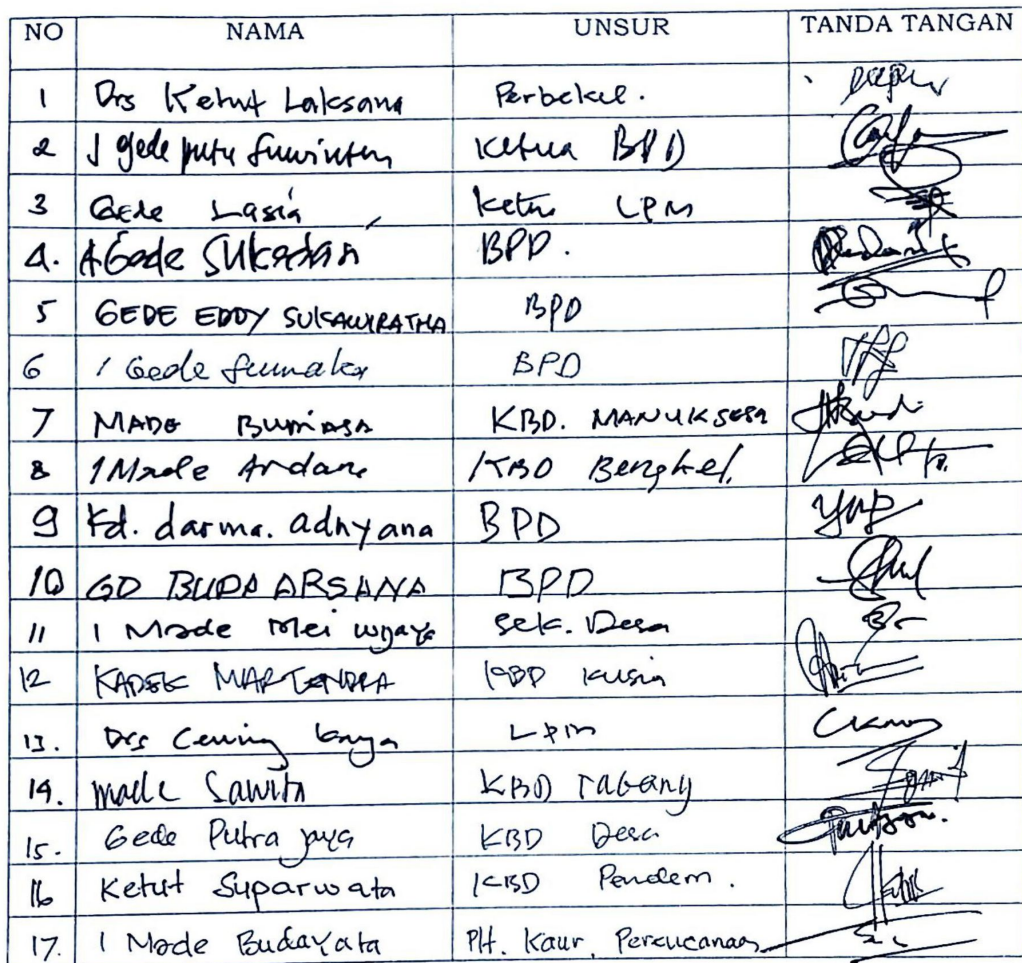 NO NAMA UNSUR TANDA TANGAN
1 Drs Ketut Laksana Perbekel.
2 I gede putu Suwinten Ketua BPD
3 Gede Lasia Ketua LPM
4. Gede Sukadan BPD.
5 GEDE EDDY SUKAWIRATHA BPD
6 I Gede Sumaka BPD
7 MADE BUMIASA KBD. MANUKSESA
8 I Made Ardana KBD Bengkel.
9 Kd. darma. adnyana BPD
10 GD BUDA ARSANA BPD
11 I Made Mei wijaya Sek. Desa
12 KADEK MARTENDRA KBD
13. Drs Cening LPM
14. made Sawita KBD Tabang
15. Gede Putra jaya KBD Desa
16 Ketut Suparwata KBD Pendem.
17. I Made Budayata Plt. Kaur. Perencanaan